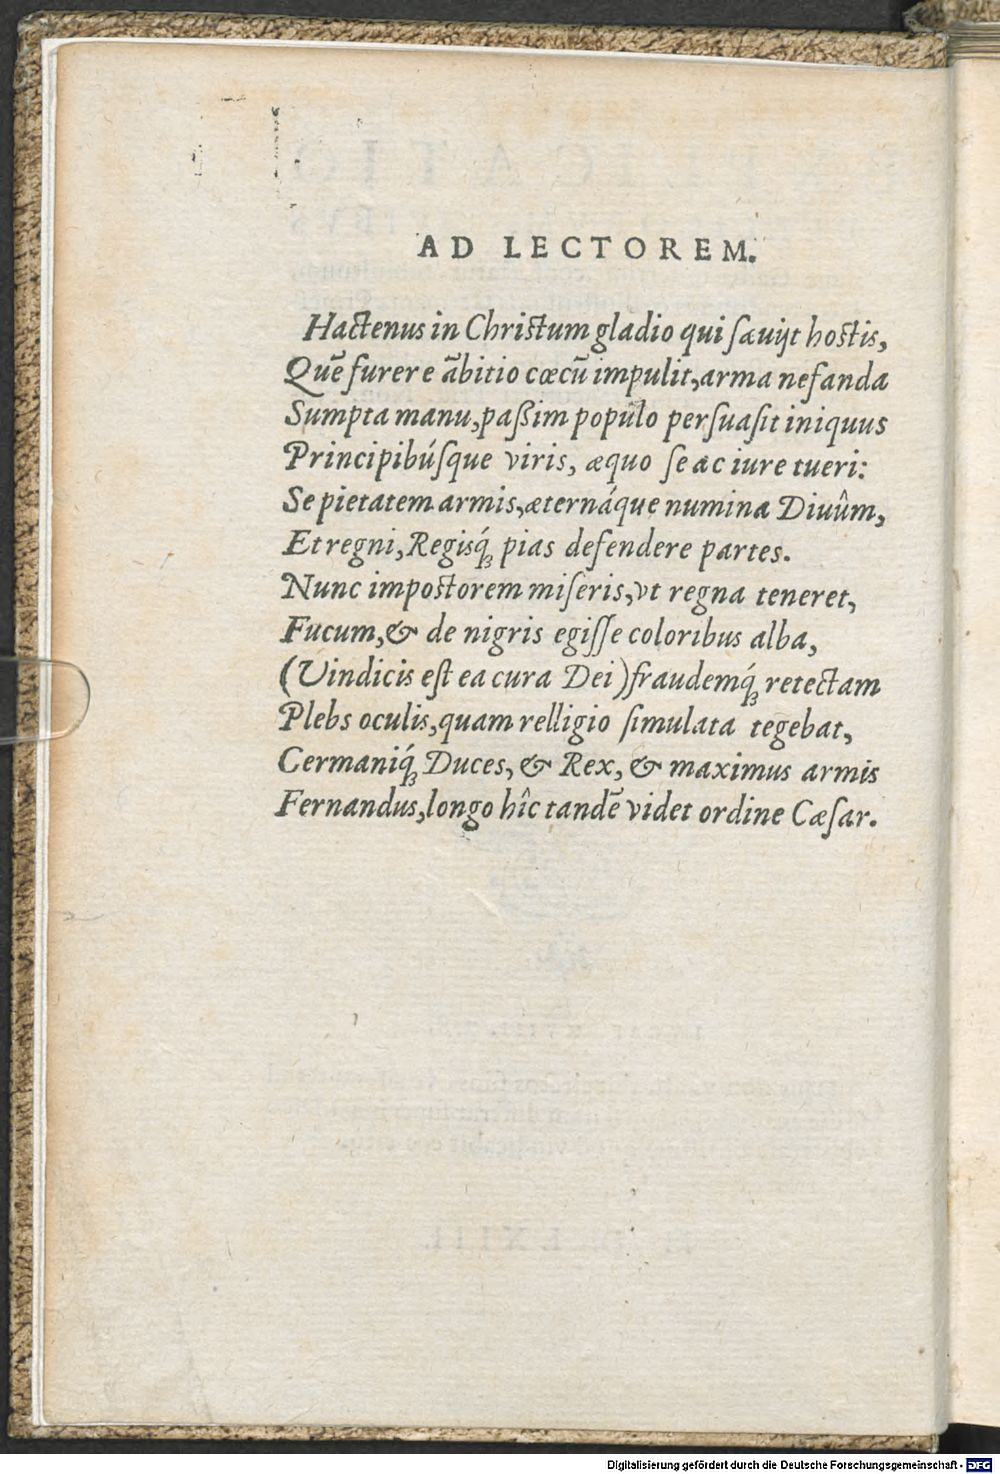 AD LECTOREM.
Hactenus in Christum gladio qui sæuijt hostis,
Quē furere ābitio cœcū impulit, arma nefanda
Sumpta manu, paßim populo persuasit iniquus
Principibúsque viris, æquo se ac iure tueri:
Se pietatem armis, æternáque numina Diuûm,
Et regni, Regisq́ꝫ pias defendere partes.
Nunc impostorem miseris, vt regna teneret,
Fucum, & de nigris egisse coloribus alba,
(Vindicis est ea cura Dei) fraudemq́ꝫ retectam
Plebs oculis, quam relligio simulata tegebat,
Germaniq́ꝫ Duces, & Rex, & maximus armis
Fernandus, longo hîc tandē videt ordine Cæsar.
Digitalisierung gefördert durch die Deutsche Forschungsgemeinschaft - DFG